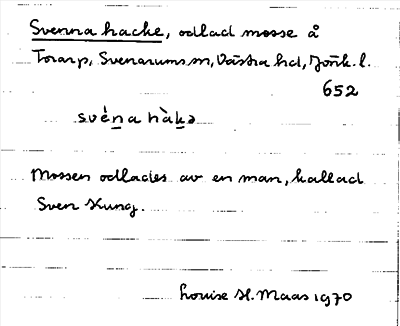 Svenna hacke, odlad mosse å
Torarp, Svenarums sn, Västra hd, Jönk. l.
652
svèna hàkə
Mossen odlades av en man, kallad
Sven Kung.
Louise H. Maas 1970